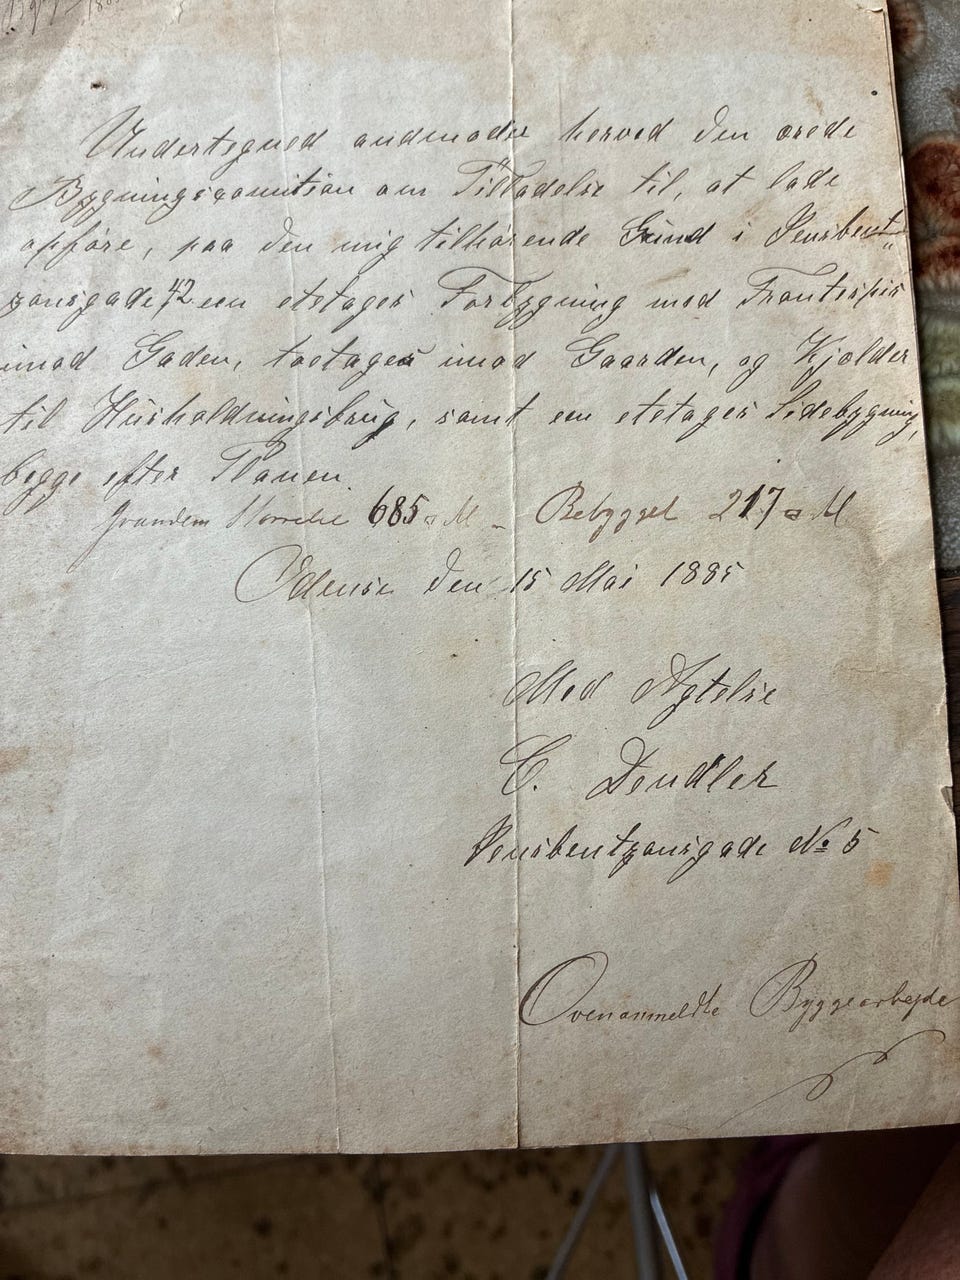 Undertegned andmoder herved den ærede
Bygningscomition om Tilladelse til, at lade
opføre, paa den mig tilhørende Grund i Jernbent-
zonsgade 42 een etetages Forbygning med Frontespis
imod Gaden, toetages imod Gaarden, og Kjælder
til Husholdningsbrug, samt een etetages Sidebygning,
begge efter Planen.
Grundens Størrelse 685 □ M - Bebygget 217 □ M
Odense den 15 Mai 1885
Med Agtelse
C. Dendler
gade № 5
Ovenanmeldte Byggearbejde